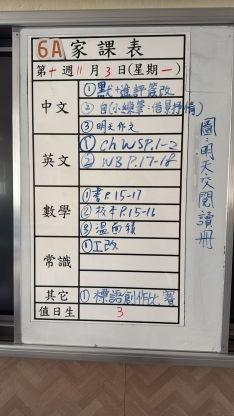 6A 家課表
第十週11月3日(星期一)
中文
①默+進評簽改
②自(小練筆:借景抒情)
③明天作文
英文
①Ch WSP.1-2
②WB P.17-18
數學
①書P.15-17
②校本P.15-16
③溫向後
常識
①工改
其它
①標語創作比賽
值日生
3
圖:明天交閱讀冊